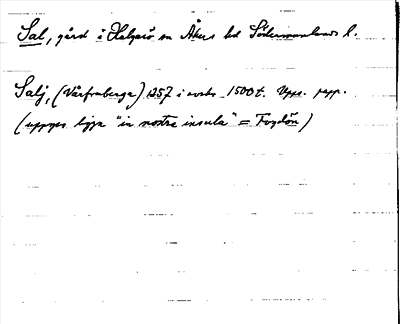 Sal, gård i Helgarö sn Åkers hd Södermanlands l.
Salj, (Vårfruberga) 1257 i avskr. 1500 t. Upps. papp.
(uppges ligga "in nostra insula" = Fogdön)